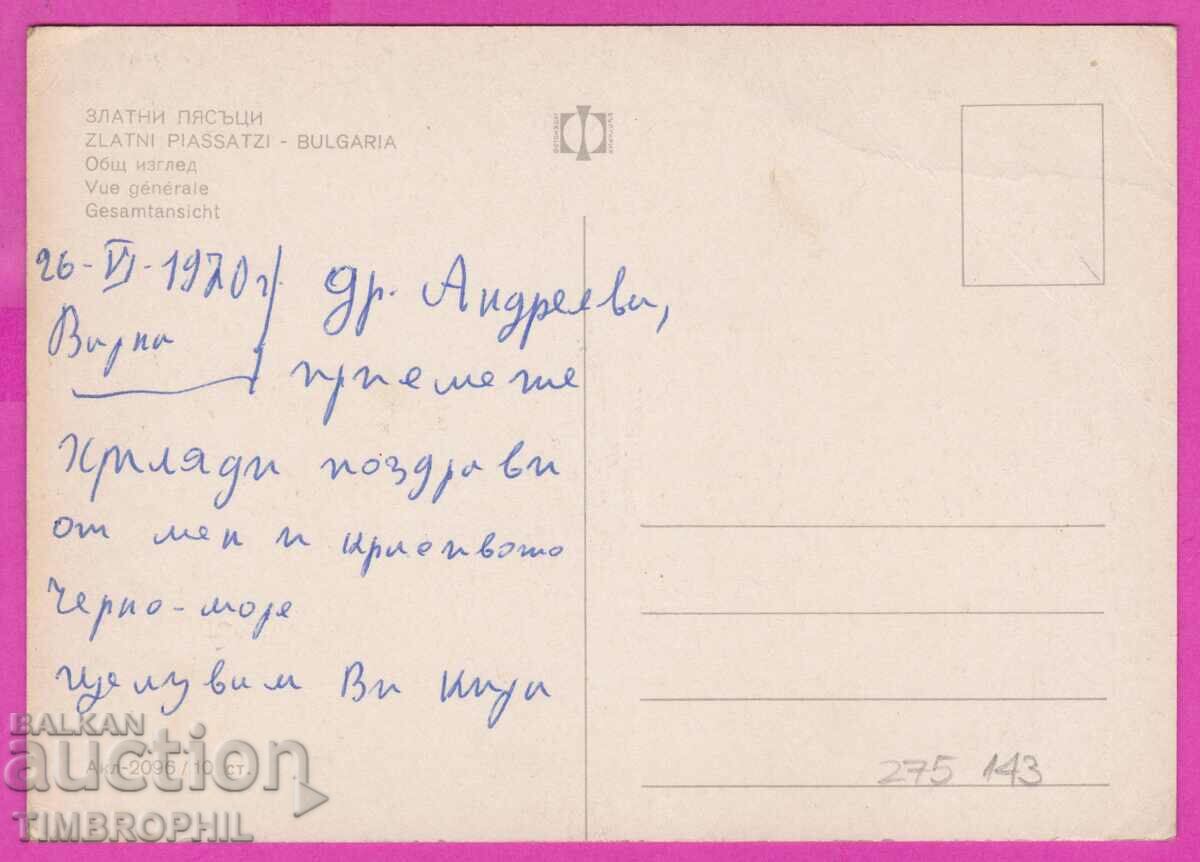 ЗЛАТНИ ПЯСЪЦИ
ZLATNI PIASSATZI - BULGARIA
Общ изглед
Vue générale
Gesamtansicht
26-VI-1970г.
Варна
др. Андрееви,
приемете
Хиляди поздрави
от мен и красивото
Черно-море
Целувам Ви
Акл-2096/10 ст.
275 143
BALKAN
auction
TIMBROPHIL